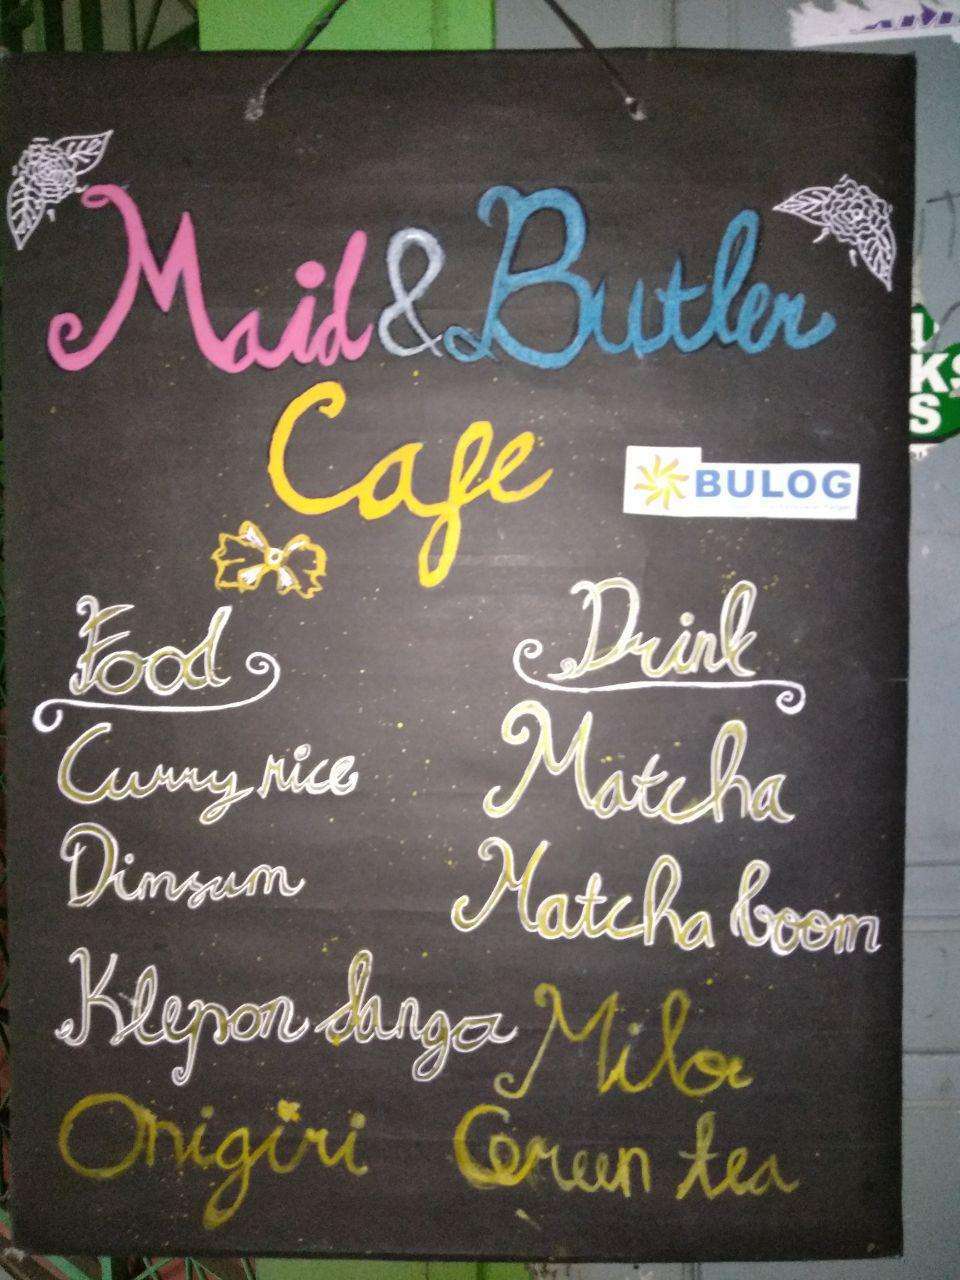 Maid & Butler
Cafe
BULOG
Food
Curry rice
Dimsum
Klepon dango
Onigiri
Drink
Matcha
Matcha boom
Milo
Green tea
KS
S